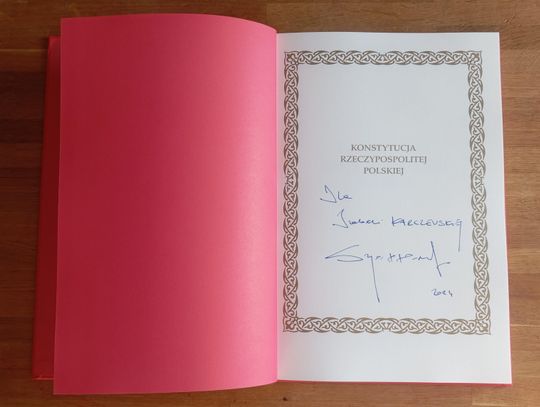 KONSTYTUCJA
RZECZYPOSPOLITEJ
POLSKIEJ
Dla
Izabeli KARCZEWSKIEJ
2024